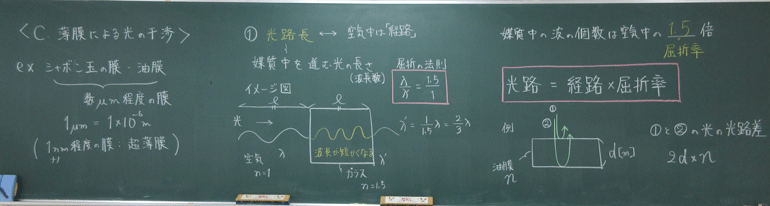 <C. 薄膜による光の干渉>
ex. シャボン玉の膜・油膜
数μm程度の膜
1μm = 1×10⁻⁶m
(1nm程度の膜：超薄膜)
① 光路長 ↔ 空気中は「経路」
媒質中を進む光の長さ
(波長数)
屈折の法則
λ/λ' = 1.5/1
イメージ図
ℓ
ℓ
光 →
λ' = 1/1.5 λ = 2/3 λ
波長が短かくなる
空気
n=1
λ
λ'
ガラス
n=1.5
媒質中の波の個数は空気中の 1.5 倍
屈折率
光路 = 経路×屈折率
例
①
②
油膜
n
d[m]
①と②の光の光路差
2d×n